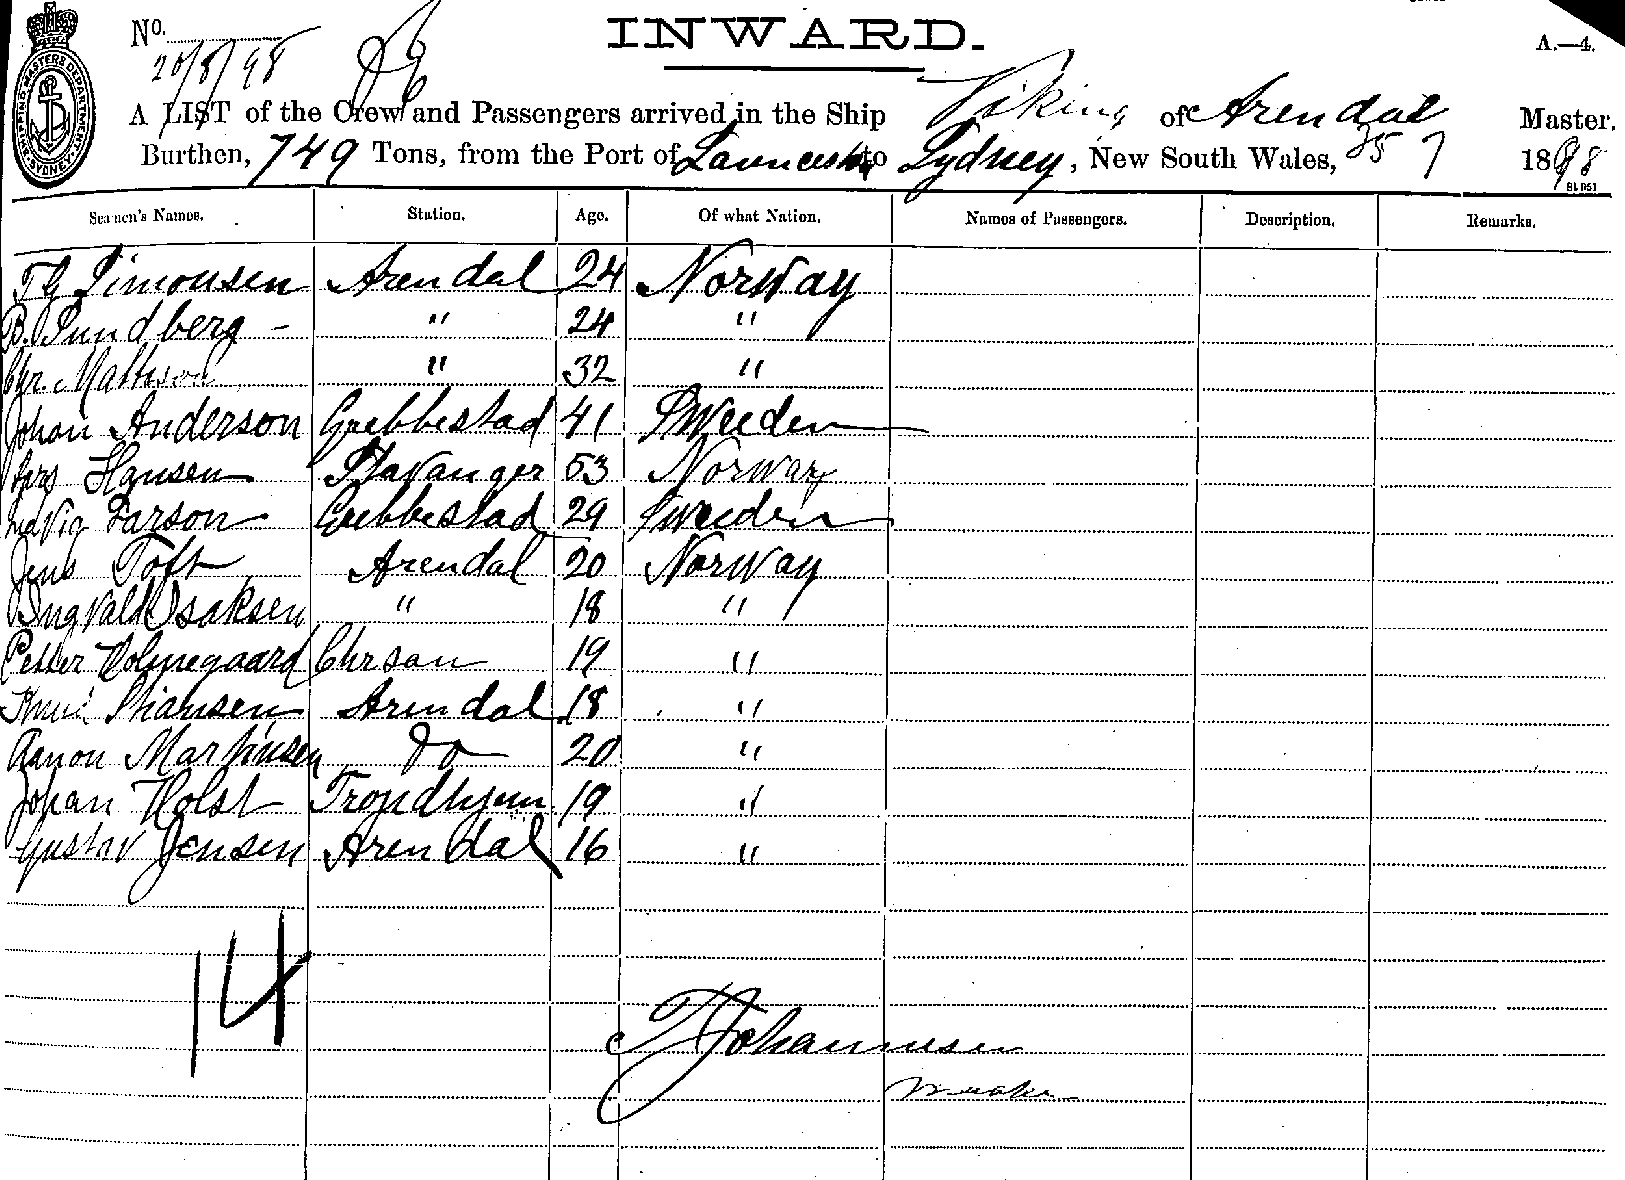 INWARD.
No.
A.—4.
20/8/98
A LIST of the Crew and Passengers arrived in the Ship Viking of Arendal Master.
Burthen, 749 Tons, from the Port of to Sydney, New South Wales, 25 7 1898
Seamen's Names. Station. Age. Of what Nation. Names of Passengers. Description. Remarks.
T G Simonsen Arendal 24 Norway
B. Sundberg - " 24 "
Chr. Mattison " 32 "
Johan Anderson Grebbestad 41 Sweeden
Hansen Stavanger 53 Norway
Ludvig Larson Grebbestad 29 Sweeden
Jens Toft Arendal 20 Norway
Ingvald Isaksen " 18 "
Petter Holmegaard Chrsan 19 "
Arendal 18 "
Aanon Martinsen do 20 "
Johan Holst Trondhjem 19 "
Gustav Jensen Arendal 16 "
14
T Johannesen
Master